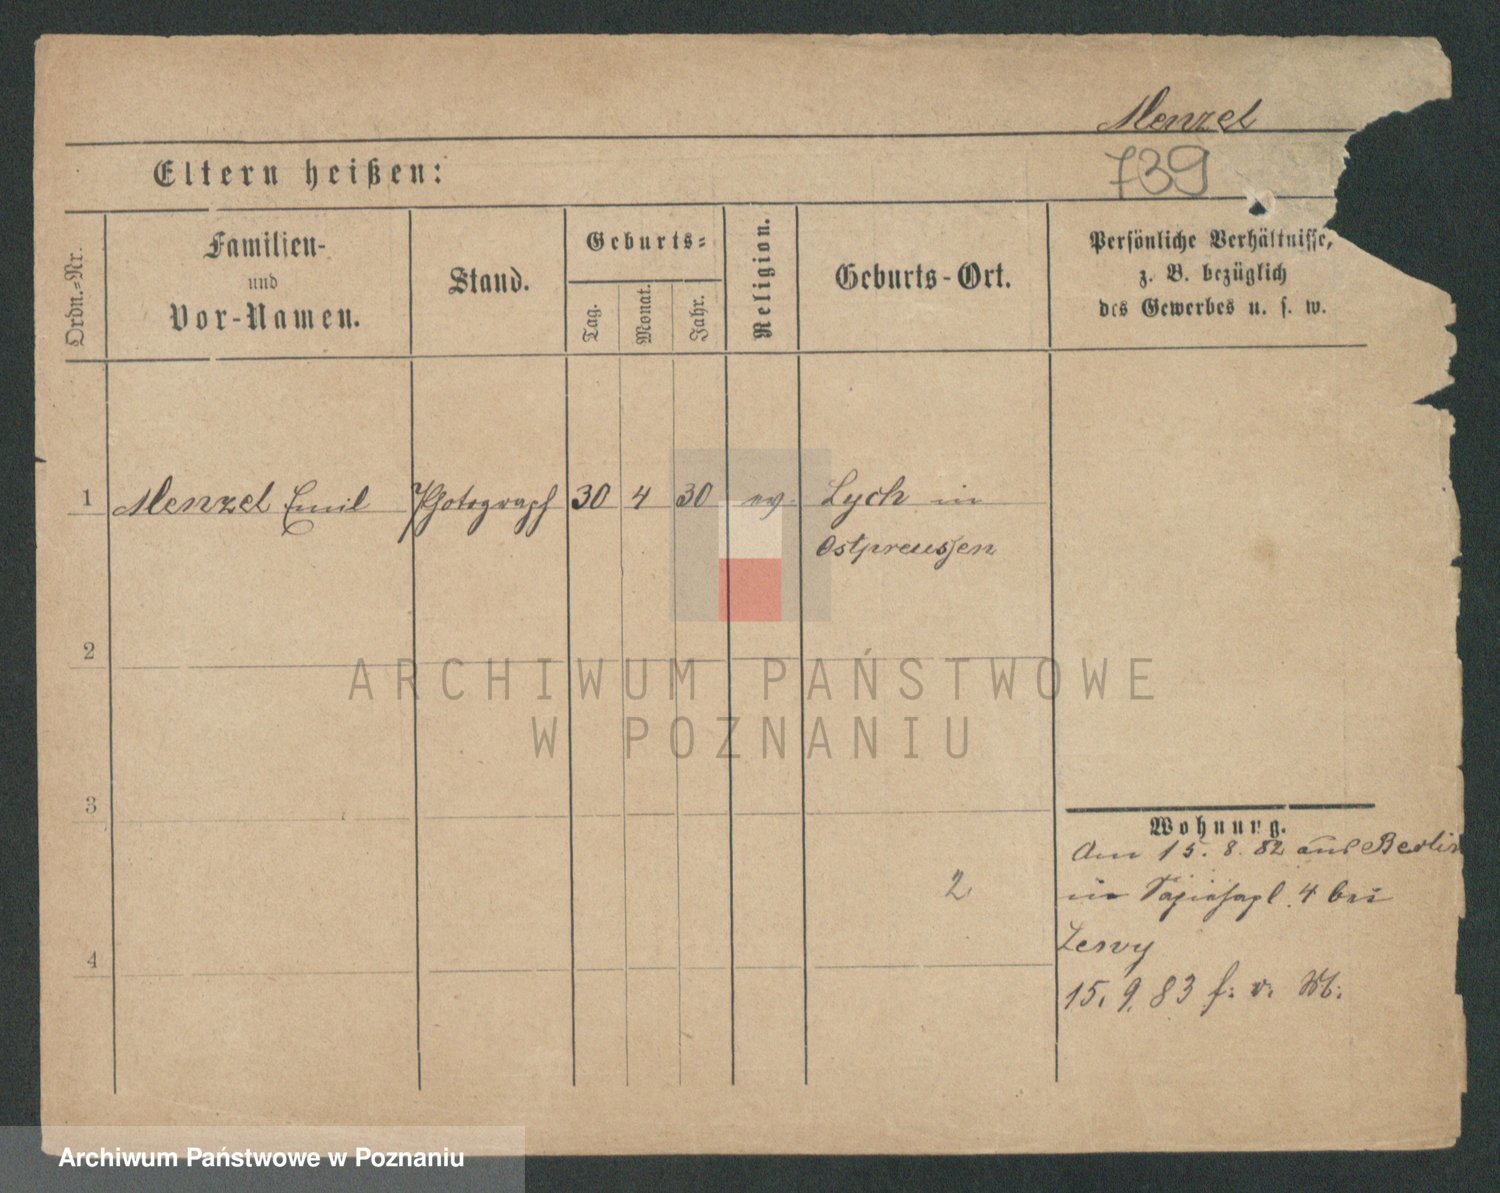 Menzel
739
Eltern heißen:
Ordn.-Nr.
Familien-
und
Vor-Namen.
Stand.
Geburts-
Tag.
Monat.
Jahr.
Religion.
Geburts-Ort.
Persönliche Verhältnisse,
z. B. bezüglich
des Gewerbes u. s. w.
1 Menzel Emil Photograph 30 4 30 ev. Lyck in
Ostpreussen
2
3
4
2
Wohnung.
Am 15. 8. 82 aus Berlin
in 4 bei
15. 9. 83 f. v. M.
ARCHIWUM PAŃSTWOWE
W POZNANIU
Archiwum Państwowe w Poznaniu